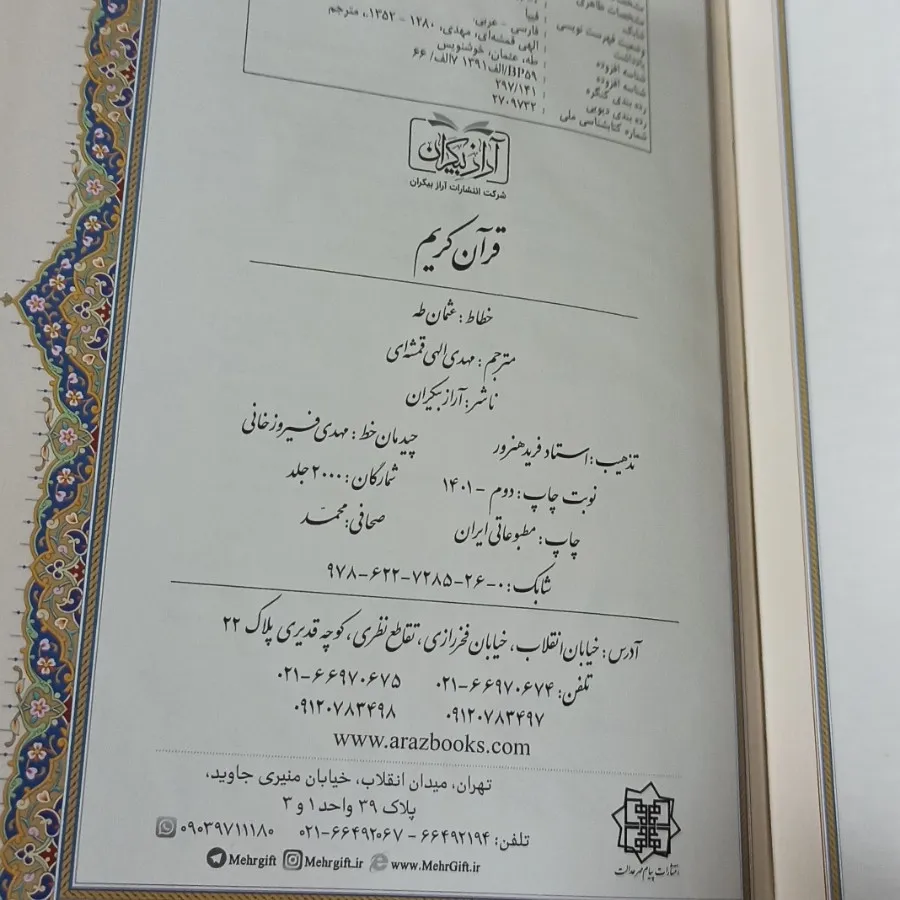 مشخصات ظاهری :
شابک :
وضعیت فهرست نویسی : فیپا
یادداشت : فارسی - عربی.
شناسه افزوده : الهی قمشه‌ای، مهدی، ۱۲۸۰ - ۱۳۵۲، مترجم
شناسه افزوده : طه، عثمان، خوشنویس
رده بندی کنگره : BP۵۹/الف۷ ۱۳۹۱الف/ ۶۶
رده بندی دیویی : ۲۹۷/۱۴۱
شماره کتابشناسی ملی : ۲۷۰۹۷۳۲
آراز بیکران
شرکت انتشارات آراز بیکران
قرآن کریم
خطاط : عثمان طه
مترجم : مهدی الهی قمشه‌ای
ناشر : آراز بیکران
تذهیب : استاد فرید هنرور چیدمان خط : مهدی فیروزخانی
نوبت چاپ : دوم - ۱۴۰۱ شمارگان : ۲۰۰۰ جلد
چاپ : مطبوعاتی ایران صحافی : محمّد
شابک : ۰-۲۶-۷۲۸۵-۶۲۲-۹۷۸
آدرس : خیابان انقلاب، خیابان فخررازی، تقاطع نظری، کوچه قدیری پلاک ۲۲
تلفن : ۶۶۹۷۰۶۷۴-۰۲۱ ۶۶۹۷۰۶۷۵-۰۲۱
۰۹۱۲۰۷۸۳۴۹۷ ۰۹۱۲۰۷۸۳۴۹۸
www.arazbooks.com
تهران، میدان انقلاب، خیابان منیری جاوید،
پلاک ۳۹ واحد ۱ و ۳
تلفن: ۶۶۴۹۲۱۹۴ - ۶۶۴۹۲۰۶۷-۰۲۱ ۰۹۰۳۹۷۱۱۱۸۰
Mehrgift Mehrgift_ir www.MehrGift.ir
انتشارات پیام مهر عدالت